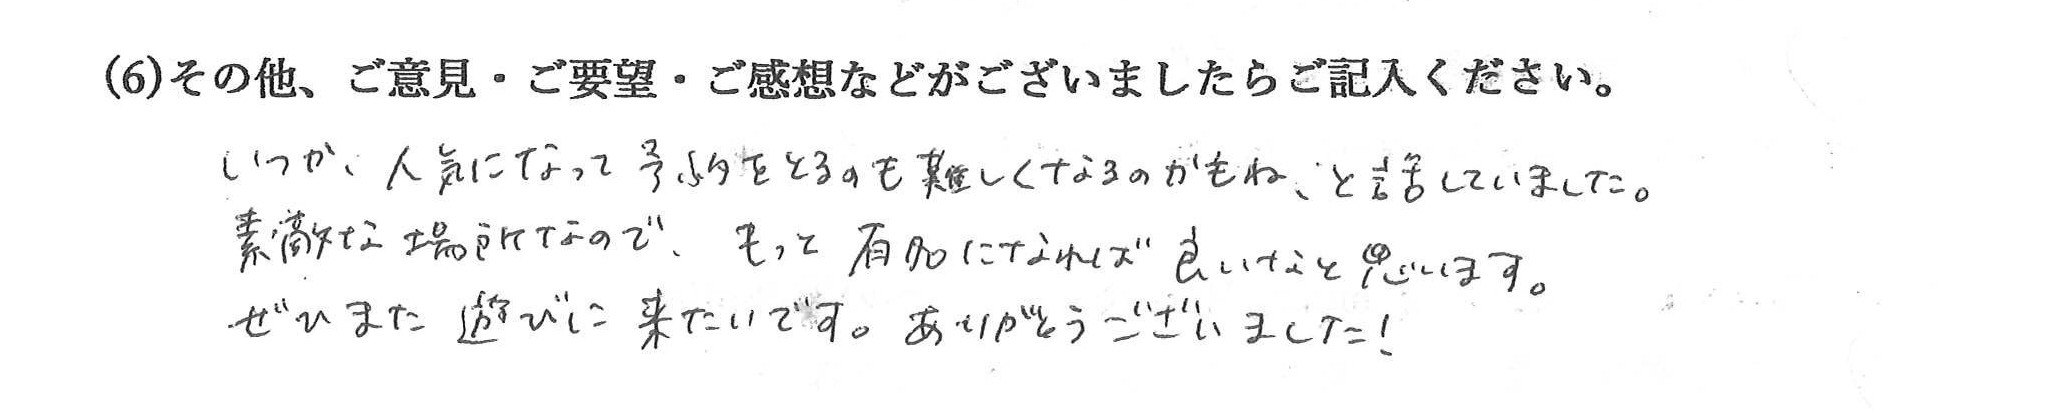 (6)その他、ご意見・ご要望・ご感想などがございましたらご記入ください。
いつか、人気になって予約をとるのも難しくなるのかもね、と話していました。
素敵な場所なので、もっと有名になれば良いなと思います。
ぜひまた遊びに来たいです。ありがとうございました!